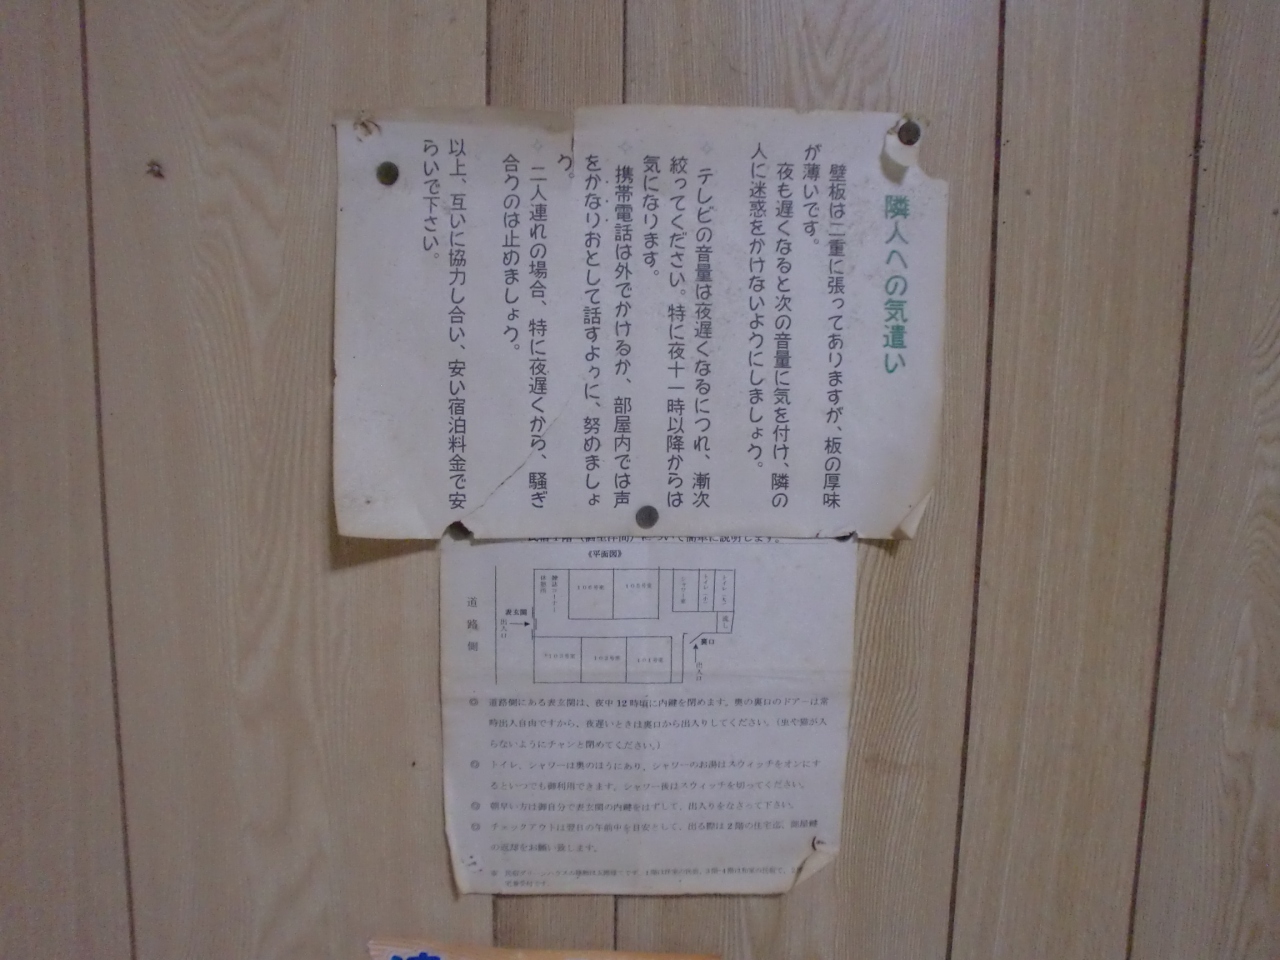 隣人への気遣い
壁板は二重に張ってありますが、板の厚味
が薄いです。
夜も遅くなると次の音量に気を付け、隣の
人に迷惑をかけないようにしましょう。
テレビの音量は夜遅くなるにつれ、漸次
絞ってください。特に夜十一時以降からは
気になります。
携帯電話は外でかけるか、部屋内では声
をかなりおとして話すように、努めましょ
う。
二人連れの場合、特に夜遅くから、騒ぎ
合うのは止めましょう。
以上、互いに協力し合い、安い宿泊料金で安
らいで下さい。
について簡単に説明します。
《平面図》
道路側
表玄関
出入口
シャワー室
流し
裏口
出入口
道路側にある表玄関は、夜中12時頃に内鍵を閉めます。奥の裏口のドアーは常
時出入自由ですから、夜遅いときは裏口から出入りしてください。(虫や猫が入
らないようにチャンと閉めてください。)
トイレ、シャワーは奥のほうにあり、シャワーのお湯はスウィッチをオンにす
るといつでも御利用できます。シャワー後はスウィッチを切ってください。
朝早い方は御自分で表玄関の内鍵をはずして、出入りをなさって下さい。
チェックアウトは翌日の午前中を目安として、出る際は2階の住宅迄、部屋鍵
の返却をお願い致します。